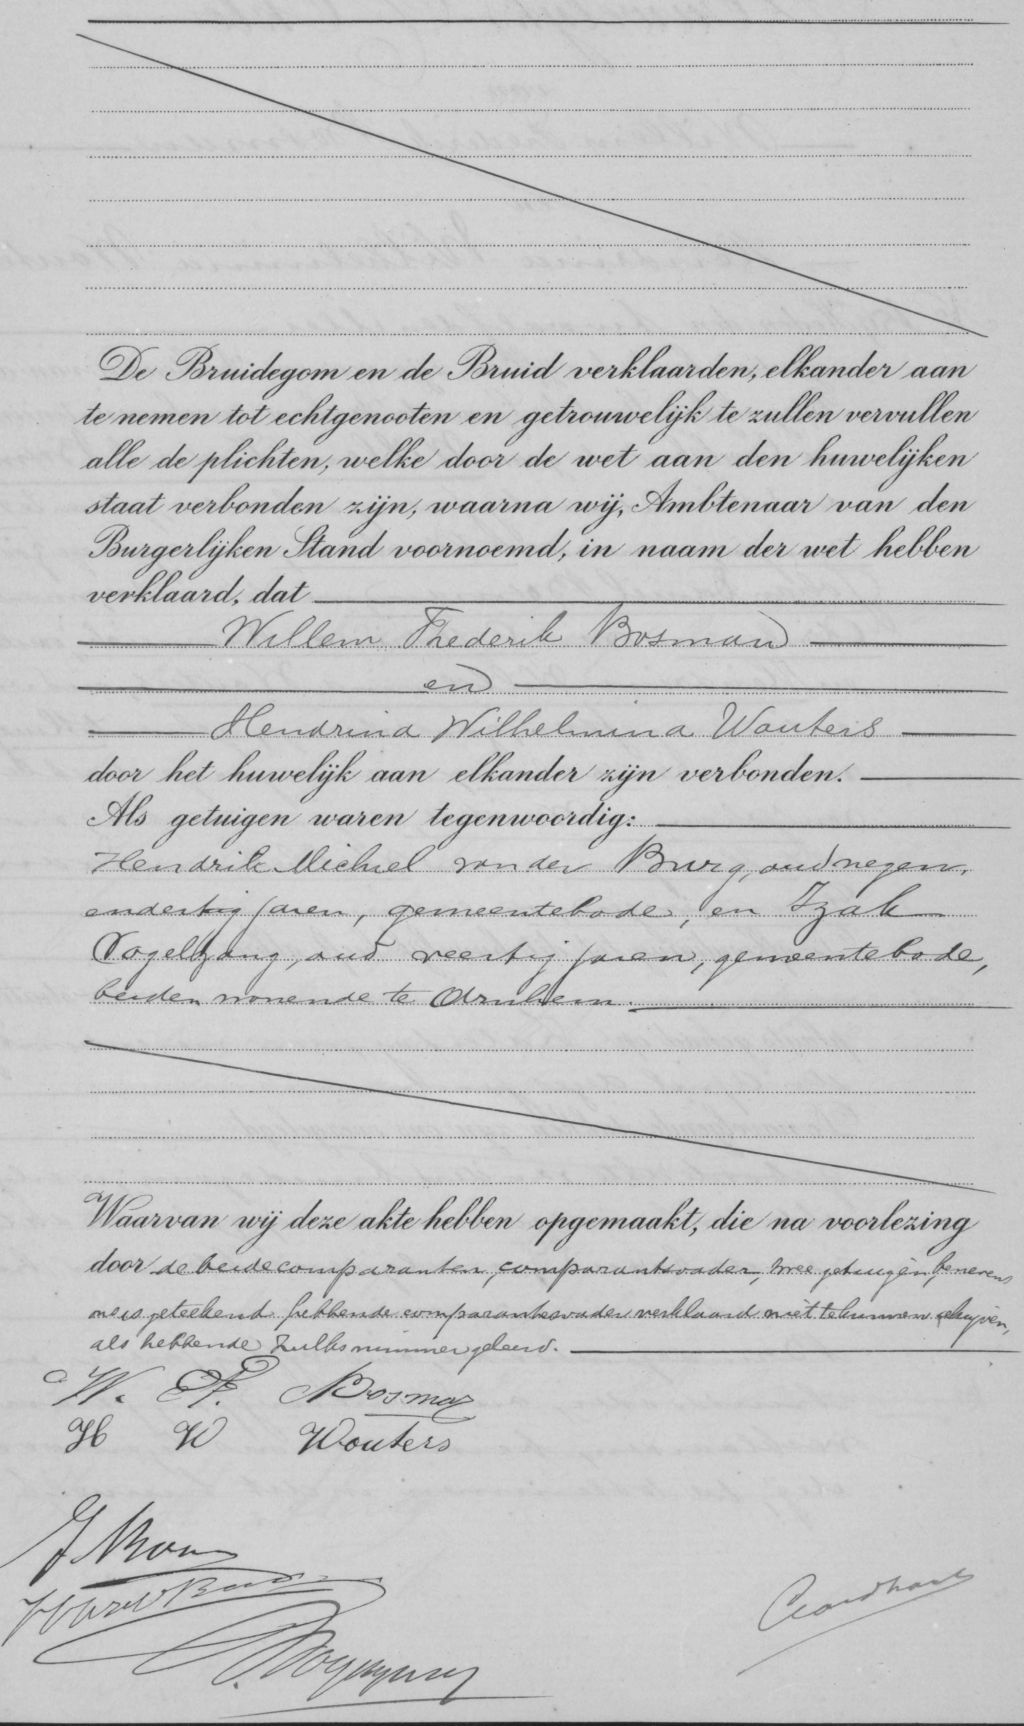 De Bruidegom en de Bruid verklaarden, elkander aan
te nemen tot echtgenooten en getrouwelijk te zullen vervullen
alle de plichten, welke door de wet aan den huwelijken
staat verbonden zijn, waarna wij, Ambtenaar van den
Burgerlijken Stand voornoemd, in naam der wet hebben
verklaard, dat
Willem Frederik Bosman
en
Hendrina Wilhelmina Wouters
door het huwelijk aan elkander zijn verbonden.
Als getuigen waren tegenwoordig:
Hendrik Michiel van der Burg, oud negen,
endertig jaren, gemeentebode, en Izak
Vogelzang, oud veertig jaren, gemeentebode,
beiden wonende te Arnhem.
Waarvan wij deze akte hebben opgemaakt, die na voorlezing
door de beide comparanten, comparantsvader, twee getuigen, benevens
ons is geteekend hebbende comparantesvader verklaard niet te kunnen schrijven,
als hebbende zulks nimmer geleerd.
W. F. Bosman
H W Wouters